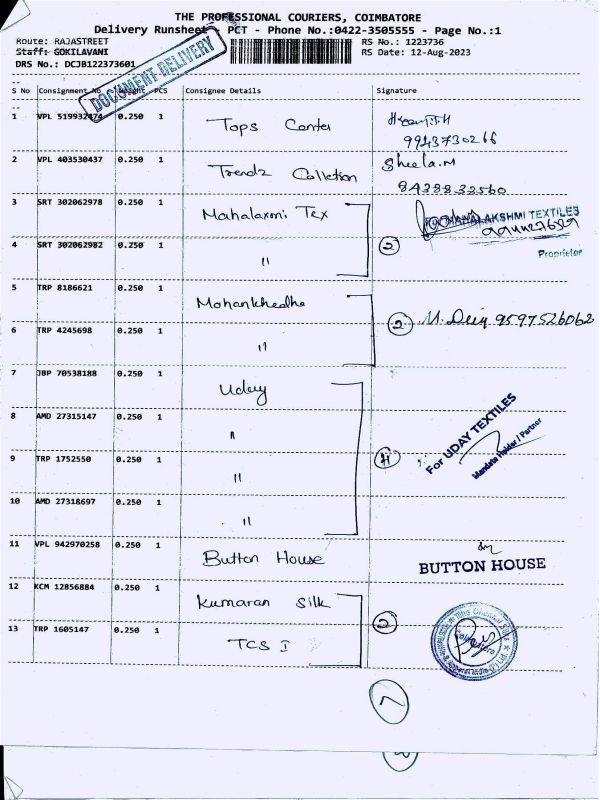 THE PROFESSIONAL COURIERS, COIMBATORE
Delivery Runsheet - PCT - Phone No.:0422-3505555 - Page No.:1
Route: RAJASTREET RS No.: 1223736
Staff: GOKILAVANI RS Date: 12-Aug-2023
DRS No.: DCJB122373601
DOCUMENT DELIVERY
S No Consignment No Weight PCS Consignee Details Signature
1 VPL 519932474 0.250 1 Tops Center
9943730266
2 VPL 403530437 0.250 1 Trendz Colletion Sheela.M
8428832560
3 SRT 302062978 0.250 1 Mahalaxmi Tex MAHALAKSHMI TEXTILES
4 SRT 302062982 0.250 1 " 2 Proprietor
5 TRP 8186621 0.250 1 Mohankhedha
2 9597526062
6 TRP 4245698 0.250 1 "
7 JBP 70538188 0.250 1 Uday
8 AMD 27315147 0.250 1 " For UDAY TEXTILES
9 TRP 1752550 0.250 1 " 4 Mandate Holder / Partner
10 AMD 27318697 0.250 1 "
11 VPL 942970258 0.250 1 Button House BUTTON HOUSE
12 KCM 12856884 0.250 1 Kumaran Silk
2
13 TRP 1605147 0.250 1 TCS I
7